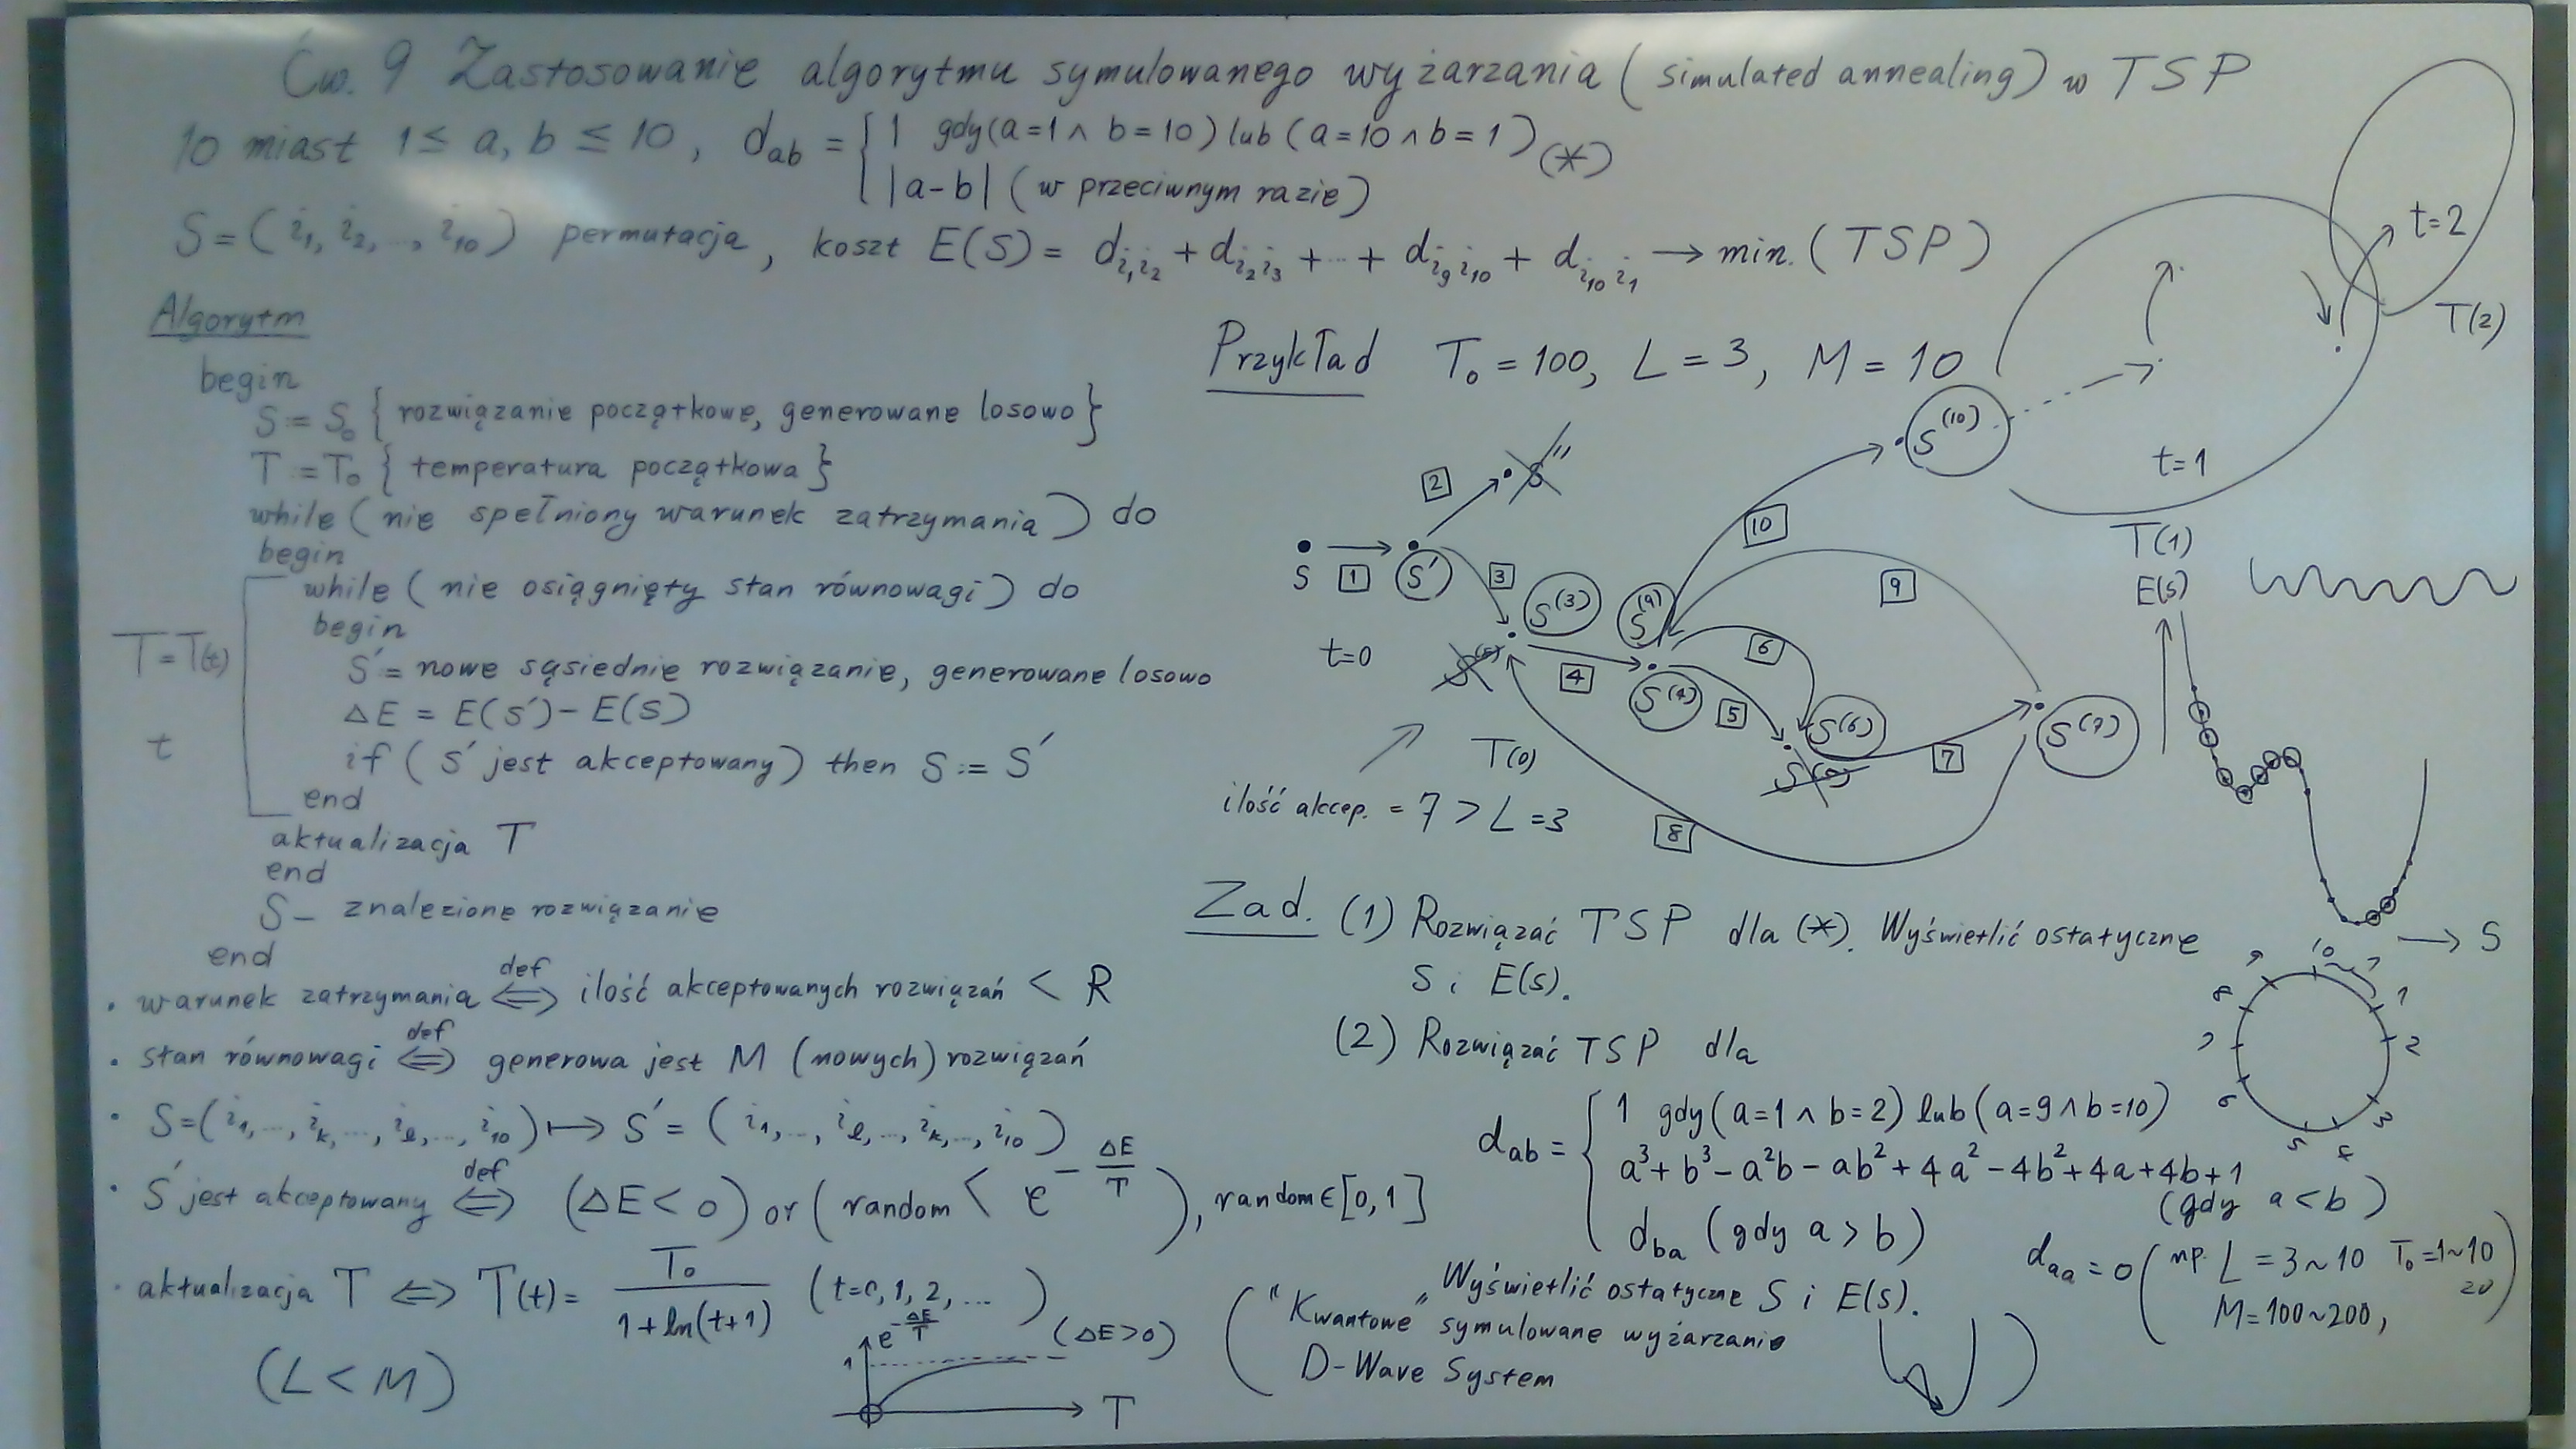 Ćw. 9 Zastosowanie algorytmu symulowanego wyżarzania (simulated annealing) w TSP
10 miast 1 ≤ a, b ≤ 10, d_ab = { 1 gdy (a=1 ∧ b=10) lub (a=10 ∧ b=1) (*)
|a-b| (w przeciwnym razie)
S = (i_1, i_2, ..., i_10) permutacja, koszt E(S) = d_{i_1 i_2} + d_{i_2 i_3} + ... + d_{i_9 i_10} + d_{i_10 i_1} → min. (TSP)
Algorytm
begin
S := S_0 { rozwiązanie początkowe, generowane losowo }
T := T_0 { temperatura początkowa }
while ( nie spełniony warunek zatrzymania ) do
begin
while ( nie osiągnięty stan równowagi ) do
begin
S' = nowe sąsiednie rozwiązanie, generowane losowo
ΔE = E(S') - E(S)
if ( S' jest akceptowany ) then S := S'
end
aktualizacja T
end
S - znalezione rozwiązanie
end
T = T(t)
t
• warunek zatrzymania ⇔ def ilość akceptowanych rozwiązań < R
• stan równowagi ⇔ def generowa jest M (nowych) rozwiązań
• S = (i_1, ..., i_k, ..., i_l, ..., i_10) ↦ S' = (i_1, ..., i_l, ..., i_k, ..., i_10)
• S' jest akceptowany ⇔ def (ΔE < 0) or (random < e^{-ΔE/T}), random ∈ [0, 1]
• aktualizacja T ⇔ T(t) = T_0 / (1 + ln(t+1)) (t = 0, 1, 2, ...)
(L < M)
1 e^{-ΔE/T} (ΔE > 0)
T
Przykład T_0 = 100, L = 3, M = 10
S 1 S' 2 S'' 3 S^(3) 4 S^(4) 5 6 S^(6) 7 S^(7) 8 9 S^(9) 10 S^(10)
t=0
T(0)
ilość akcep. = 7 > L = 3
t=1
T(1)
t=2
T(2)
E(S)
S
Zad. (1) Rozwiązać TSP dla (*). Wyświetlić ostatyczne
S i E(S).
(2) Rozwiązać TSP dla
d_ab = { 1 gdy (a=1 ∧ b=2) lub (a=9 ∧ b=10)
a³ + b³ - a²b - ab² + 4a² - 4b² + 4a + 4b + 1
(gdy a < b)
d_ba (gdy a > b)
d_aa = 0 ( np. L = 3~10 T_0 = 1~10
20
M = 100~200, )
Wyświetlić ostatyczne S i E(S).
( "Kwantowe" symulowane wyżarzanie
D-Wave System )
10 1 2 3 4 5 6 7 8 9
1